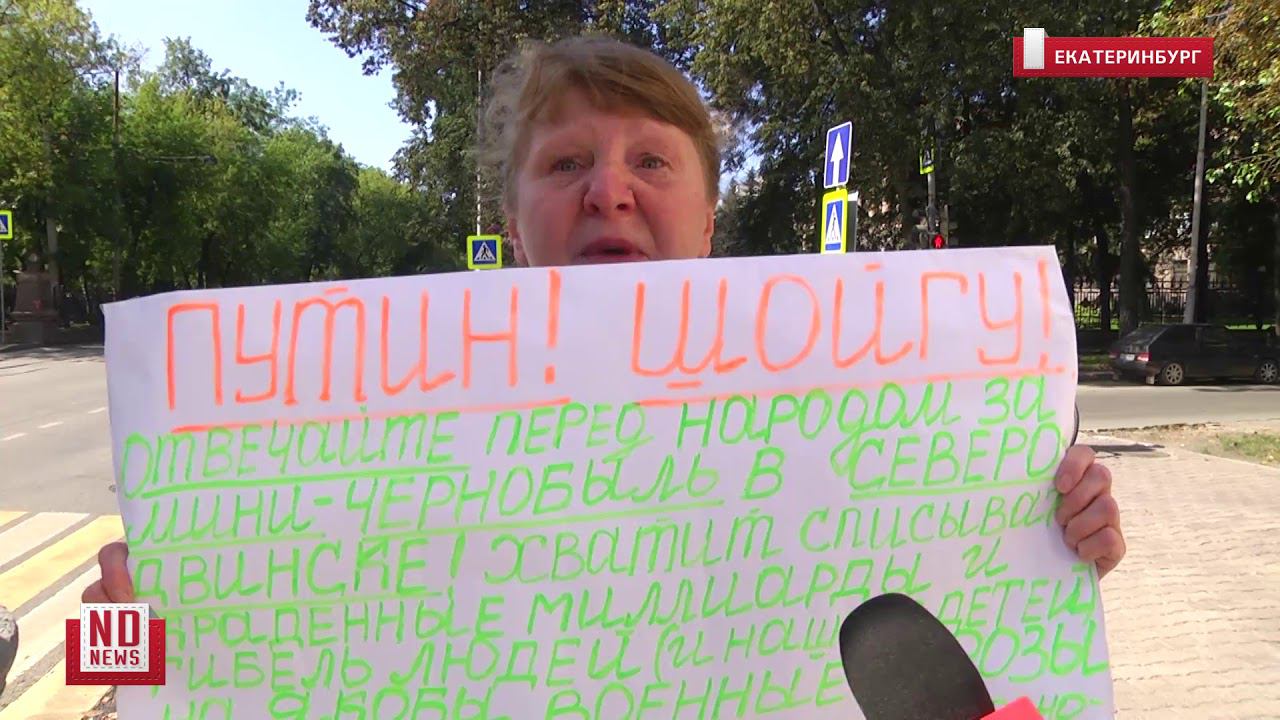 ЕКАТЕРИНБУРГ
ПУТИН! ШОЙГУ!
ОТВЕЧАЙТЕ ПЕРЕД НАРОДОМ ЗА
МИНИ-ЧЕРНОБЫЛЬ В СЕВЕРО
ДВИНСКЕ! ХВАТИТ СПИСЫВАТ
КРАДЕННЫЕ МИЛЛИАРДЫ И
ГИБЕЛЬ ЛЮДЕЙ (И НАШ ДЕТЕЙ)
НА ЯКОБЫ ВОЕННЫЕ
ND
NEWS